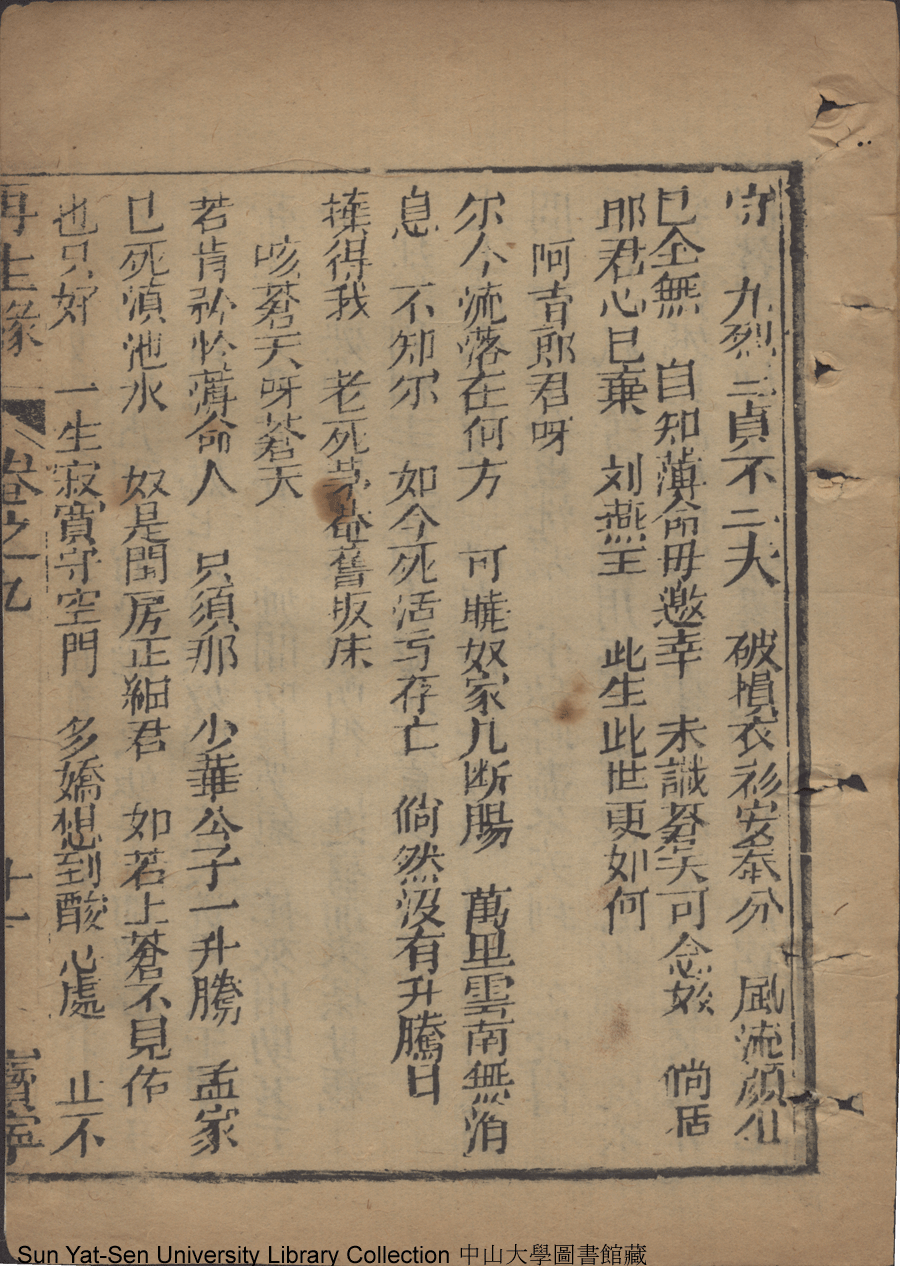 守 九烈三貞不二夫 破損衣衫安泰分 風流顔
已全無 自知薄命毋邀幸 未識君天可念奴 倘居
耶君心已棄 刘燕玉 此生此世更如何
阿吉郎君呀
尔今流落在何方 可曉奴家几断腸 萬里雲南無消
息 不知尔 如今死活亏存亡 倘然没有升騰日
撲得我 老死茅菴舊板床
咳蒼天呀蒼天
若肯矜怜薄命人 只須那 少華公子一升騰 孟家
已死滇池水 奴是閨房正細君 如若上蒼不見佑
也只好 一生寂寞守空門 多嬌想到酸心處 止不
再生緣 卷之九 十一 寳寧
Sun Yat-Sen University Library Collection 中山大學圖書館藏